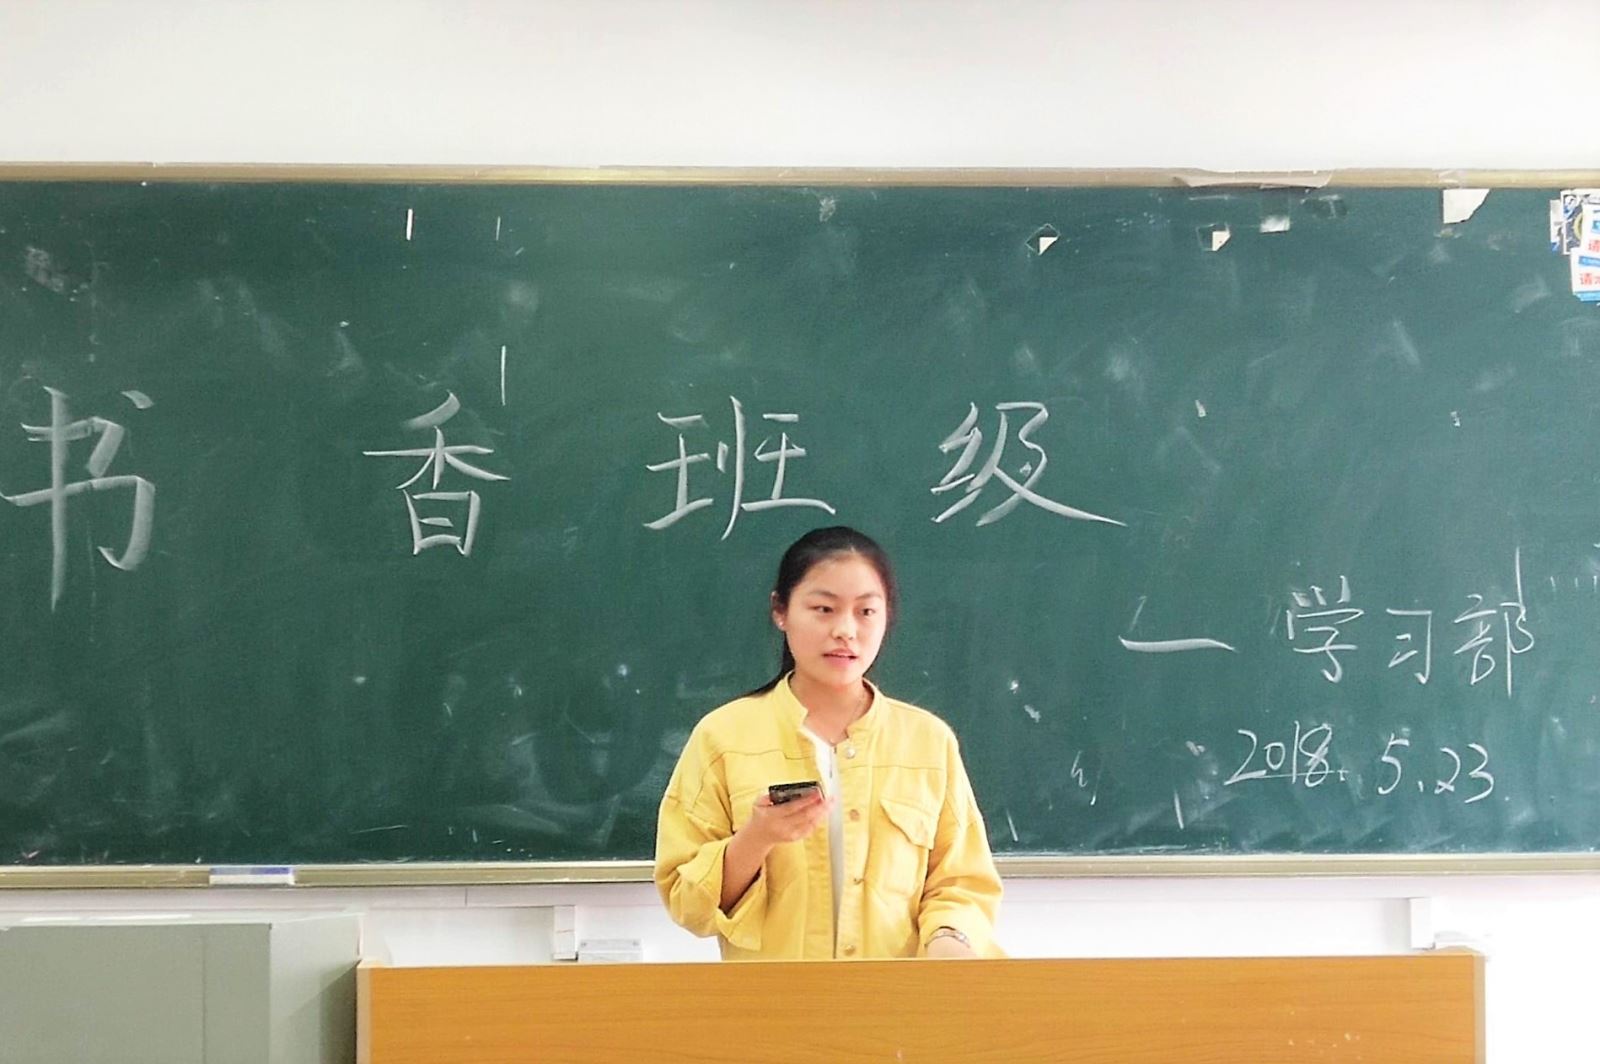 书香班级
一学习部
2018.5.23
请
请